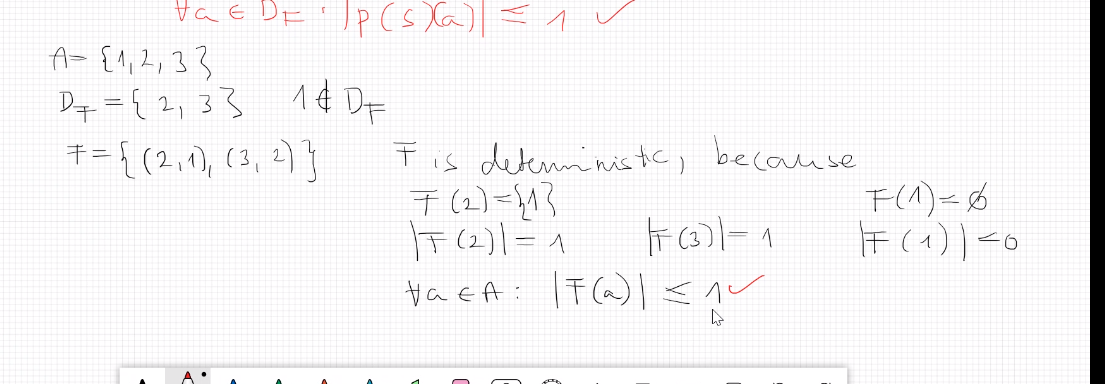 ∀a ∈ D_F : |p(s)(a)| ≤ 1 ✓
A = {1, 2, 3}
D_F = {2, 3} 1 ∉ D_F
F = {(2,1), (3,2)} F is deterministic, because
F(2) = {1} F(1) = ∅
|F(2)| = 1 |F(3)| = 1 |F(1)| = 0
∀a ∈ A : |F(a)| ≤ 1 ✓